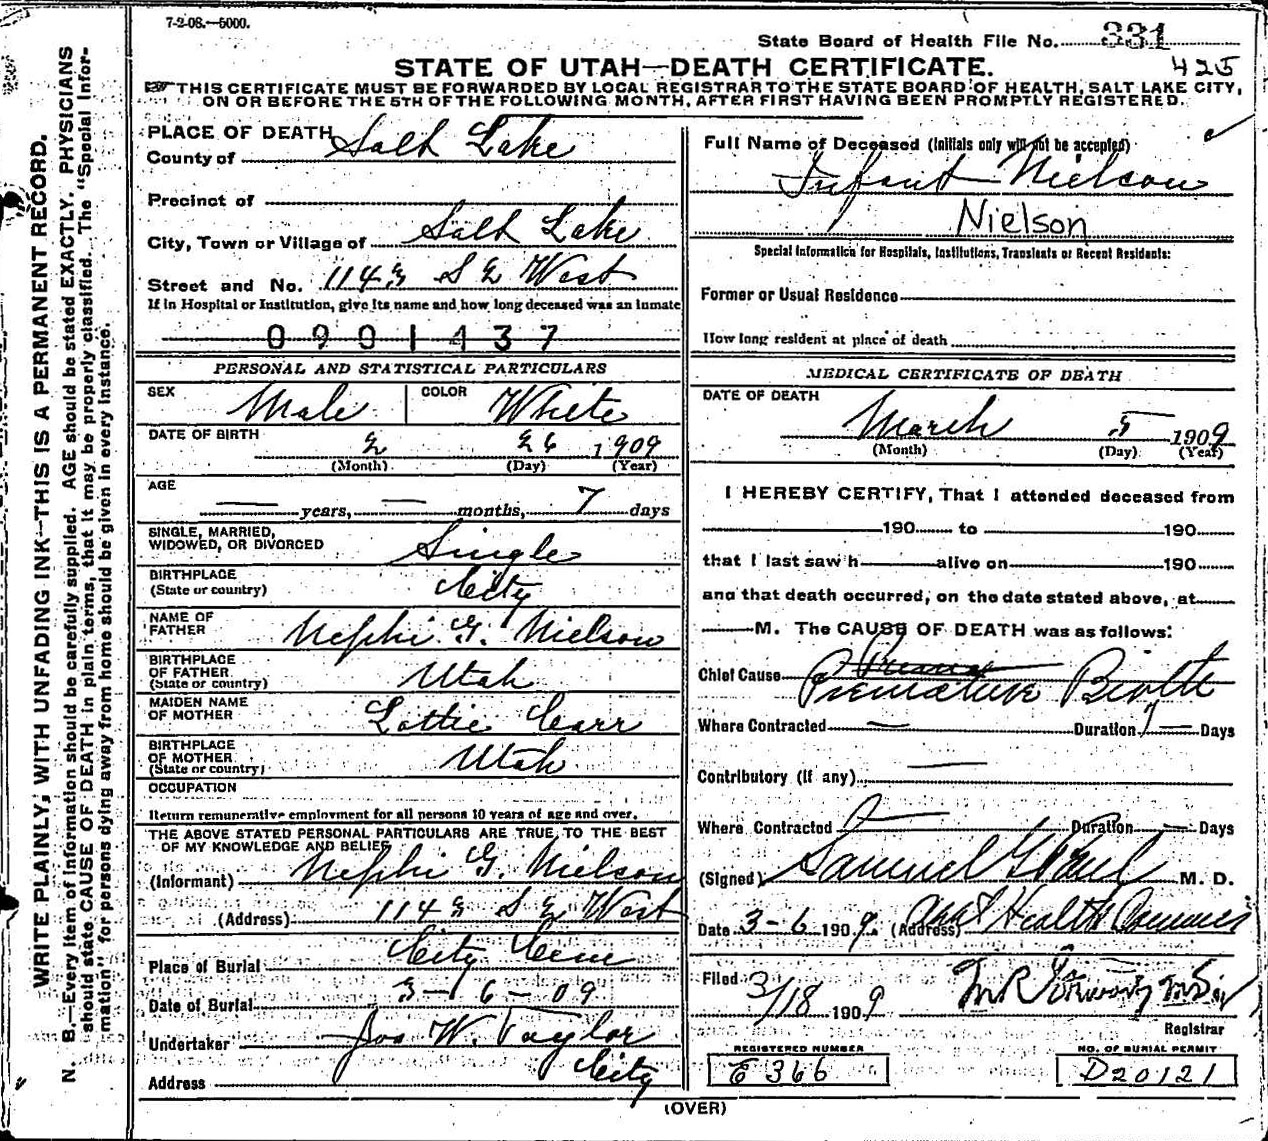 7-2-08.—5000.
State Board of Health File No. 331
STATE OF UTAH—DEATH CERTIFICATE.
425
THIS CERTIFICATE MUST BE FORWARDED BY LOCAL REGISTRAR TO THE STATE BOARD OF HEALTH, SALT LAKE CITY,
ON OR BEFORE THE 5TH OF THE FOLLOWING MONTH, AFTER FIRST HAVING BEEN PROMPTLY REGISTERED.
WRITE PLAINLY, WITH UNFADING INK—THIS IS A PERMANENT RECORD.
N. B.—Every item of information should be carefully supplied. AGE should be stated EXACTLY. PHYSICIANS
should state CAUSE OF DEATH in plain terms, that it may be properly classified. The "Special Infor-
mation" for persons dying away from home should be given in every instance.
PLACE OF DEATH
County of Salt Lake
Precinct of
City, Town or Village of Salt Lake
Street and No. 1143 S 2 West
If in Hospital or Institution, give its name and how long deceased was an inmate
0901437
PERSONAL AND STATISTICAL PARTICULARS
SEX Male COLOR White
DATE OF BIRTH 2 26 1909
(Month) (Day) (Year)
AGE
— years, — months, 7 days
SINGLE, MARRIED,
WIDOWED, OR DIVORCED Single
BIRTHPLACE
(State or country) City
NAME OF
FATHER Nephi G. Nielson
BIRTHPLACE
OF FATHER
(State or country) Utah
MAIDEN NAME
OF MOTHER Lottie Carr
BIRTHPLACE
OF MOTHER
(State or country) Utah
OCCUPATION
Return remunerative employment for all persons 10 years of age and over.
THE ABOVE STATED PERSONAL PARTICULARS ARE TRUE TO THE BEST
OF MY KNOWLEDGE AND BELIEF
(Informant) Nephi G. Nielson
(Address) 1143 S 2 West
Place of Burial City Cem
Date of Burial 3-6-09
Undertaker Jos W. Taylor
Address City
Full Name of Deceased (Initials only will not be accepted)
Infant Nielson
Nielson
Special Information for Hospitals, Institutions, Transients or Recent Residents:
Former or Usual Residence
How long resident at place of death
MEDICAL CERTIFICATE OF DEATH
DATE OF DEATH
March 5 1909
(Month) (Day) (Year)
I HEREBY CERTIFY, That I attended deceased from
190 to 190
that I last saw h alive on 190
and that death occurred, on the date stated above, at
M. The CAUSE OF DEATH was as follows:
Chief Cause Premature Birth
Where Contracted — Duration 7 — Days
Contributory (if any) —
Where Contracted — Duration — Days
(Signed) Samuel G Paul M. D.
Date 3-6 1909. (Address) Health
Filed 3/18 1909
Registrar
REGISTERED NUMBER
E 366
NO. OF BURIAL PERMIT
D20121
(OVER)